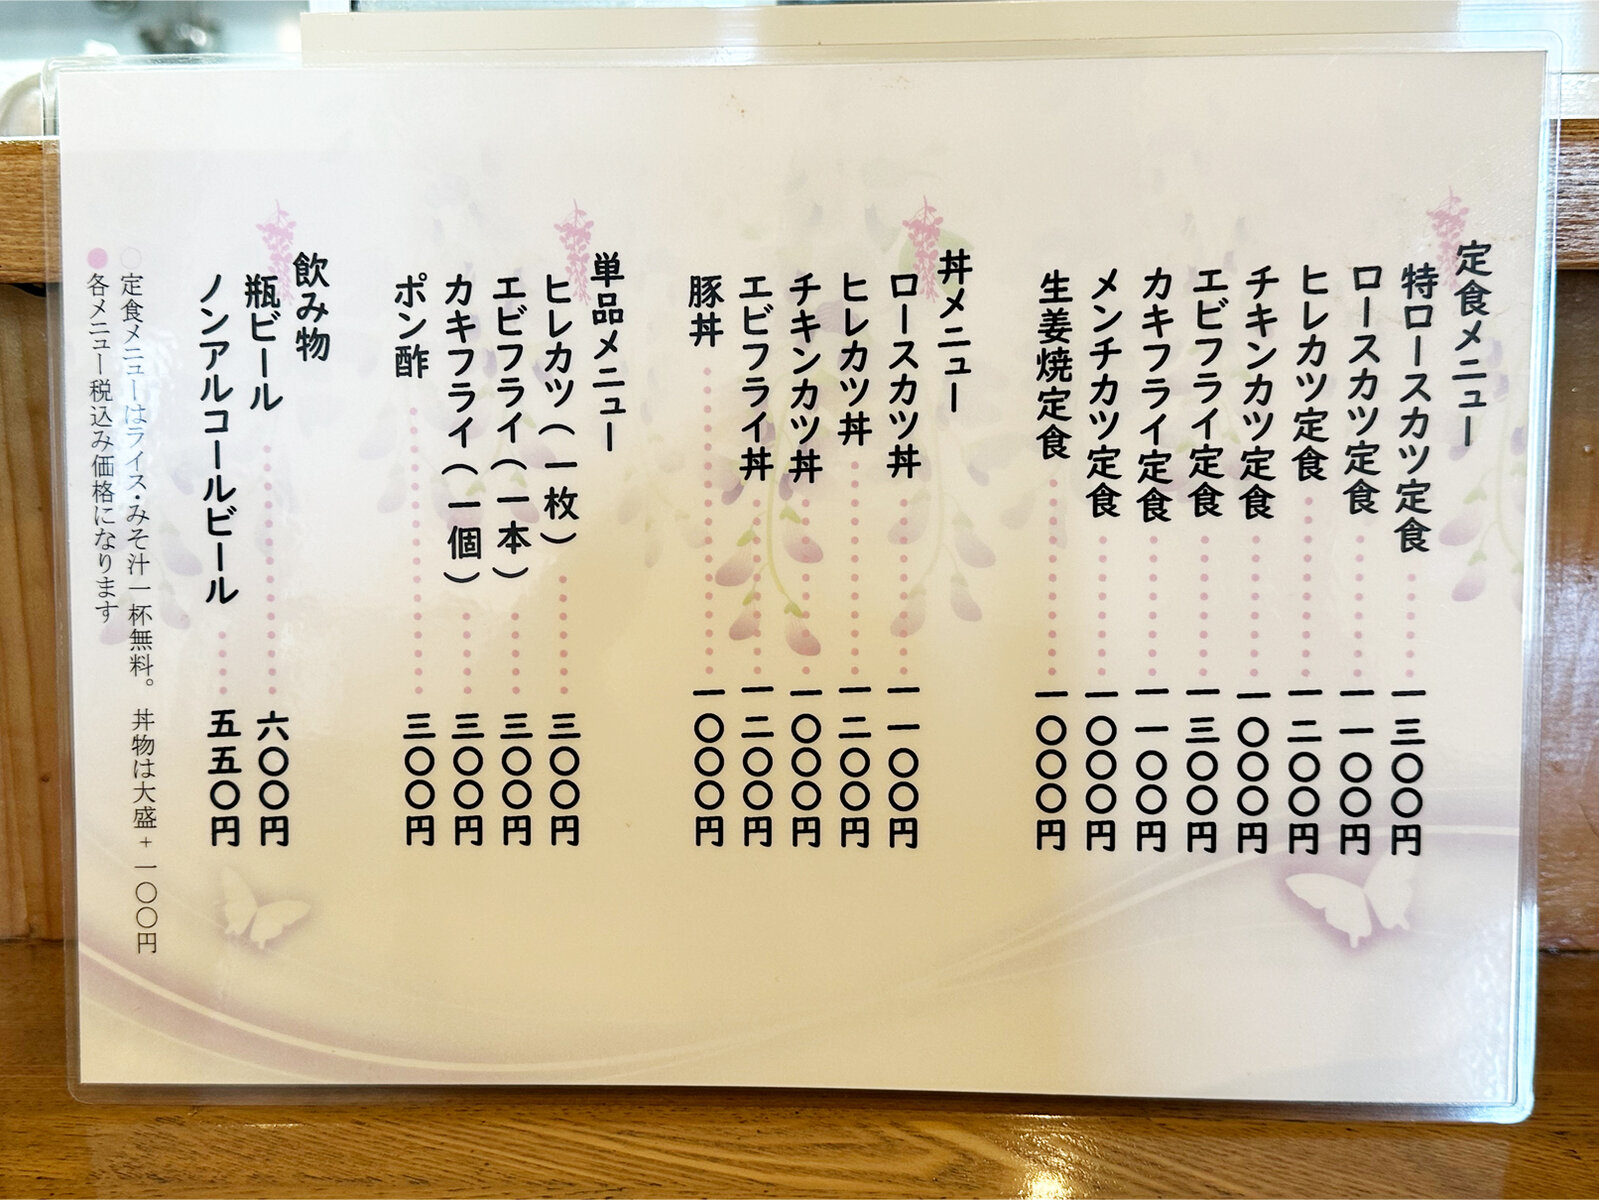 定食メニュー
特ロースカツ定食 一三〇〇円
ロースカツ定食 一一〇〇円
ヒレカツ定食 一二〇〇円
チキンカツ定食 一〇〇〇円
エビフライ定食 一三〇〇円
カキフライ定食 一一〇〇円
メンチカツ定食 一〇〇〇円
生姜焼定食 一〇〇〇円
丼メニュー
ロースカツ丼 一一〇〇円
ヒレカツ丼 一二〇〇円
チキンカツ丼 一〇〇〇円
エビフライ丼 一二〇〇円
豚丼 一〇〇〇円
単品メニュー
ヒレカツ(一枚) 三〇〇円
エビフライ(一本) 三〇〇円
カキフライ(一個) 三〇〇円
ポン酢 三〇〇円
飲み物
瓶ビール 六〇〇円
ノンアルコールビール 五五〇円
○定食メニューはライス・みそ汁一杯無料。 丼物は大盛+一〇〇円
●各メニュー税込み価格になります